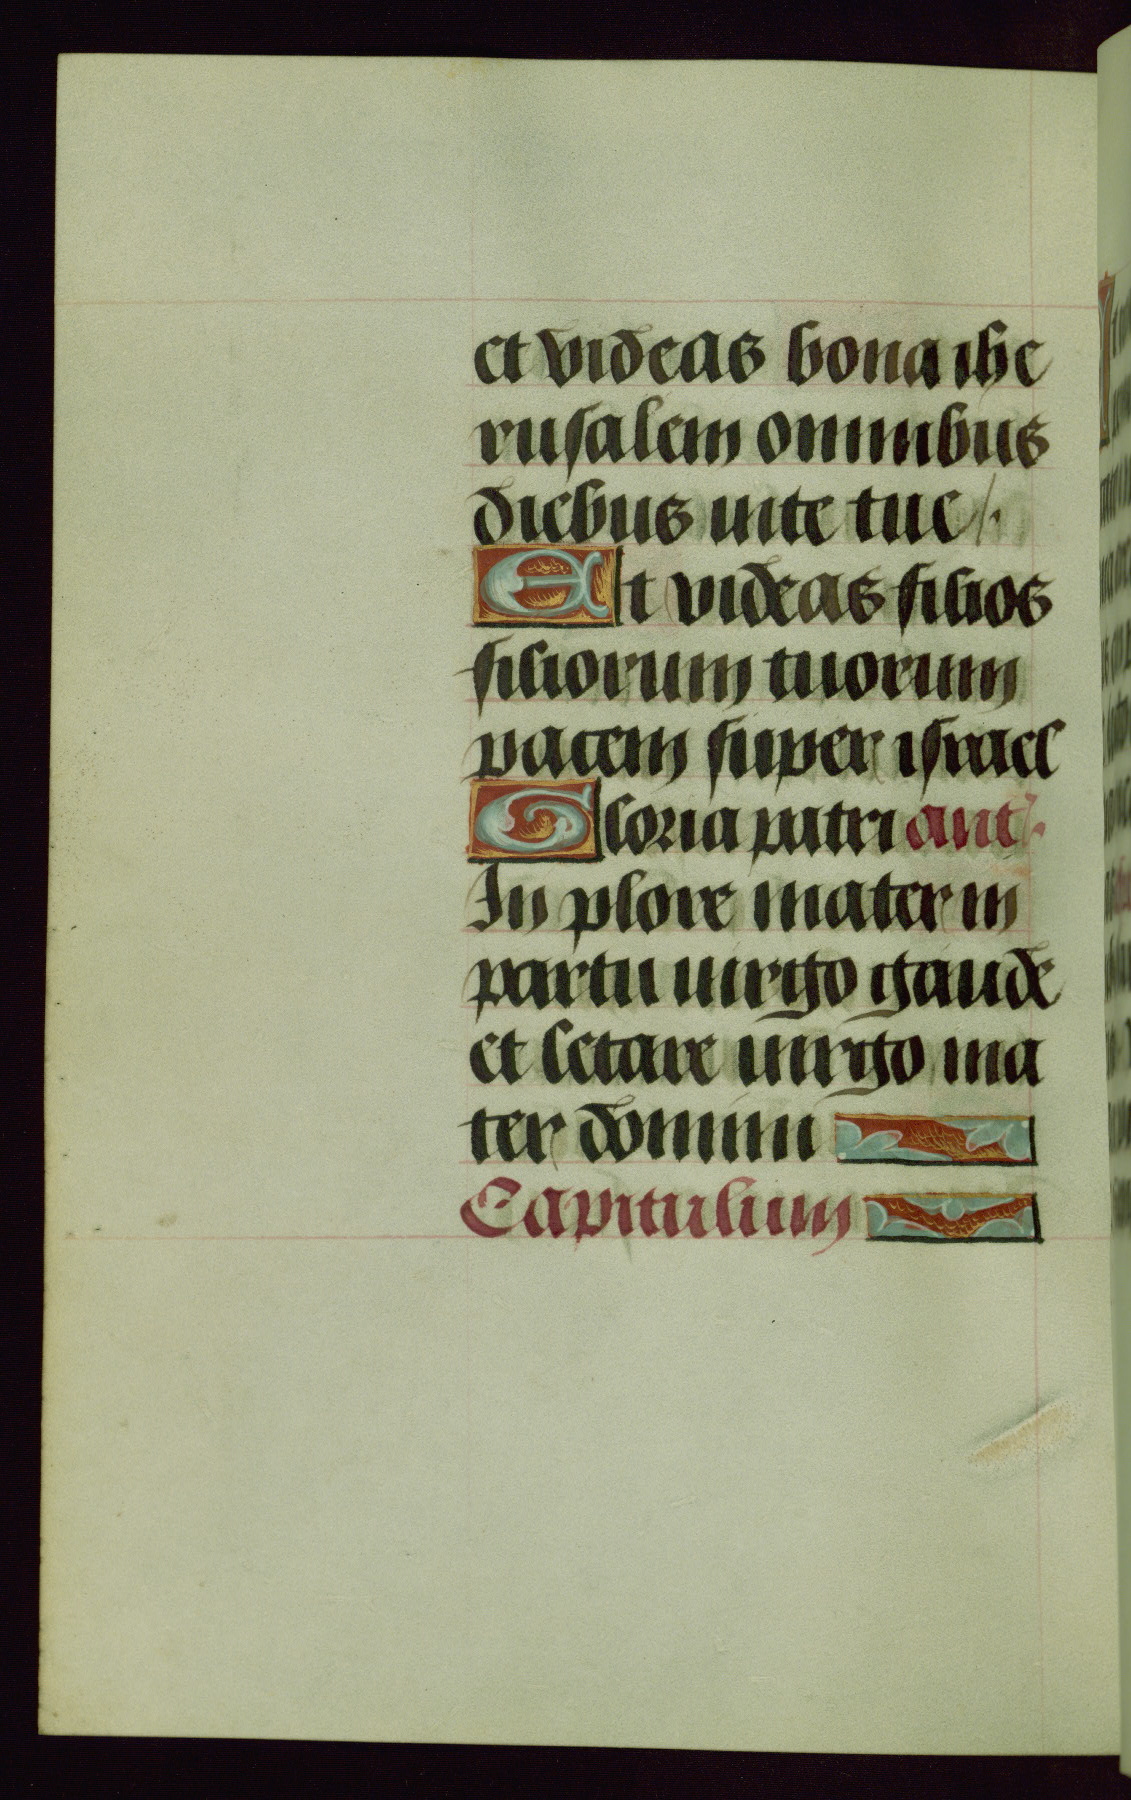 et videas bona ihe
rusalem omnibus
diebus uite tue /.
Et videas filios
filiorum tuorum
pacem super israel
Gloria patri ant.
In plore mater in
partu uirgo gaude
et letare uirgo ma
ter domini
Capitulum